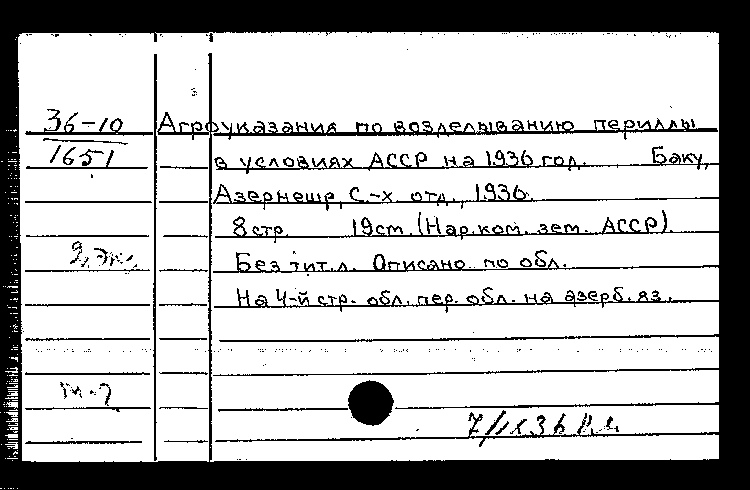 36-10
1651
Агроуказания по возделыванию периллы
в условиях АССР на 1936 год. Баку,
Азернешр, С.-х. отд., 1936.
8 стр. 19 см. (Нар. ком. зем. АССР).
2 экз.
Без тит. л. Описано по обл.
На 4-й стр. обл. пер. обл. на азерб. яз.